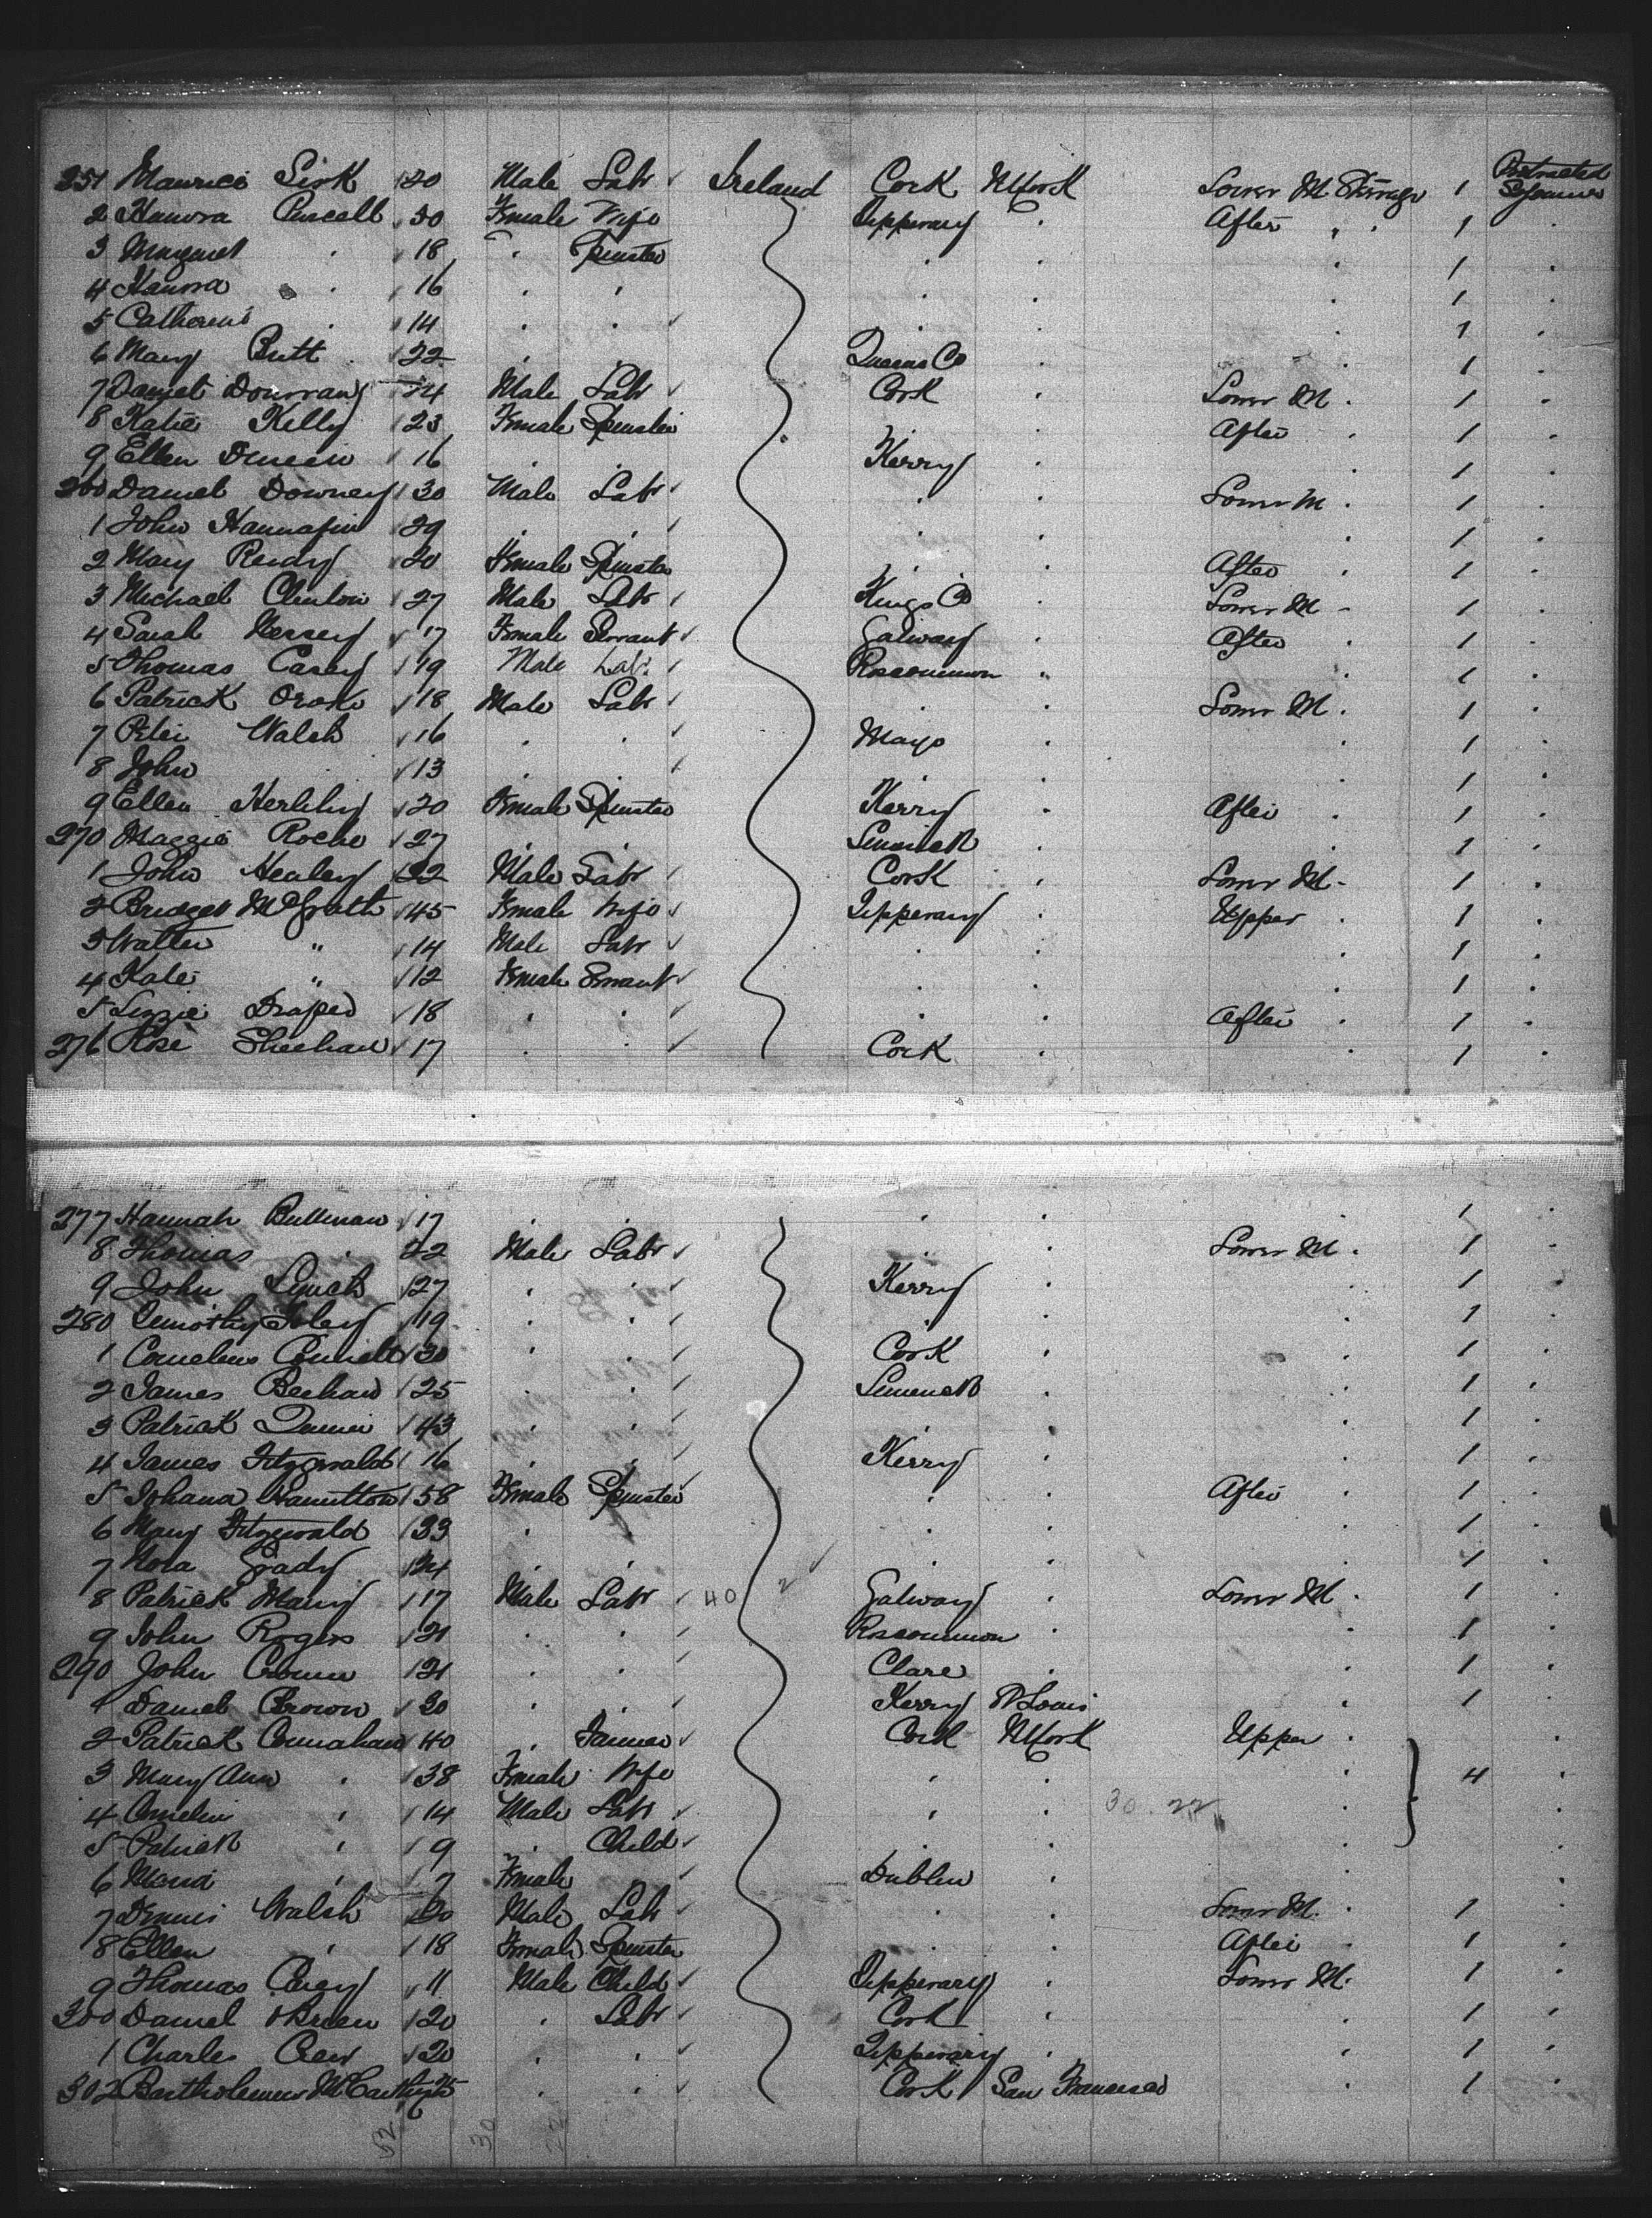 251 Maurice Sisk 20 Male Labr Ireland Cork NYork Lower M. Steerage 1 Protracted Sojourn
2 Hanora Purcell 50 Female Wife Tipperary . After " . 1 .
3 Margaret . 18 . Spinster . . . 1 .
4 Hanora . 16 . . . . . 1 .
5 Catherine . 14 . . . . . 1 .
6 Mary Butt 22 . . Queens Co . . 1 .
7 Daniel 24 Male Labr Cork . Lower M . 1 .
8 Katie Kelly 23 Female Spinster . . After . 1 .
9 Ellen 16 . . Kerry . . 1 .
260 Daniel Downey 30 Male Labr . . Lower M . 1 .
1 John Hannafin 29 . . . . . 1 .
2 Mary Reidy 20 Female Spinster . . After . 1 .
3 Michael 27 Male Labr Kings Co . Lower M - 1 .
4 Sarah 17 Female Servant Galway . After . 1 .
5 Thomas Casey 19 Male Labr. Roscommon " . 1 .
6 Patrick 18 Male Labr . . Lower M . 1 .
7 Peter Walsh 16 . . Mayo . . 1 .
8 John . 13 . . . . . 1 .
9 Ellen Herlihy 20 Female Spinster Kerry . After . 1 .
270 Maggie Roche 27 . . Limerick . . 1 .
1 John Healey 22 Male Labr Cork . Lower M - 1 .
2 Bridget McGrath 45 Female Wife Tipperary . Upper . 1 .
3 Walter " 14 Male Labr . . . 1 .
4 Kate " 12 Female Servant . . . 1 .
5 Lizzie Draper 18 . . . . After . 1 .
276 Rose Sheehan 17 . . Cork . . 1 .
277 Hannah Bullman 17 . . . . . 1 .
8 Thomas . 22 Male Labr . . Lower M . 1 .
9 John Lynch 27 . . Kerry . . 1 .
280 Timothy Foley 19 . . . . . 1 .
1 Cornelius 30 . . Cork . . 1 .
2 James 25 . . Limerick . . 1 .
3 Patrick 43 . . . . . 1 .
4 James Fitzgerald 16 . . Kerry . . 1 .
5 Johana Hamilton 58 Female Spinster . . After . 1 .
6 Mary Fitzgerald 33 . . . . . 1 .
7 Nora Grady 24 . . . . . 1 .
8 Patrick 17 Male Labr 40 2 Galway . Lower M . 1 .
9 John Rogers 21 . . Roscommon . . 1 .
290 John 21 . . Clare . . 1 .
1 Daniel Brown 30 . . Kerry St Louis . 1 .
2 Patrick 40 . Farmer Cork NYork Upper . .
3 Mary Ann . 38 Female Wife . . . } 4 .
4 . 14 Male Labr . . 30 . 22 . .
5 Patrick . 9 . Child . . . .
6 Maria . 7 Female Dublin . . .
7 Dennis Walsh 20 Male Labr . . Lower M. . 1 .
8 Ellen . 18 Female Spinster . . After . 1 .
9 Thomas 11 Male Child Tipperary . Lower M. 1 .
300 Daniel OBrien 20 . Labr Cork . . 1 .
1 Charles 20 . . Tipperary . . 1 .
302 Bartholemew McCarthy 25 . . Cork San Francisco . 1 .
52 30 22